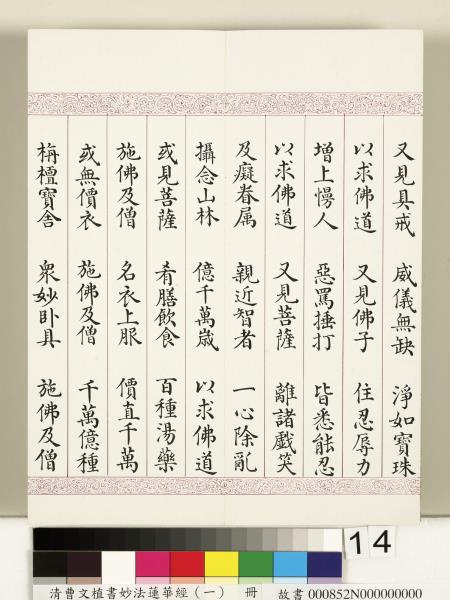 又見具戒 威儀無缺 淨如寶珠
以求佛道 又見佛子 住忍辱力
增上慢人 惡罵捶打 皆悉能忍
以求佛道 又見菩薩 離諸戲笑
及癡眷属 親近智者 一心除亂
攝念山林 億千萬歲 以求佛道
或見菩薩 肴膳飲食 百種湯藥
施佛及僧 名衣上服 價直千萬
或無價衣 施佛及僧 千萬億種
栴檀寶舍 衆妙卧具 施佛及僧
14
清曹文植書妙法蓮華經(一) 冊 故書 000852N000000000